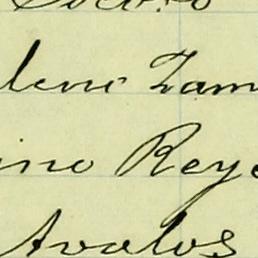 lene Zam
ino Reye
Avalos